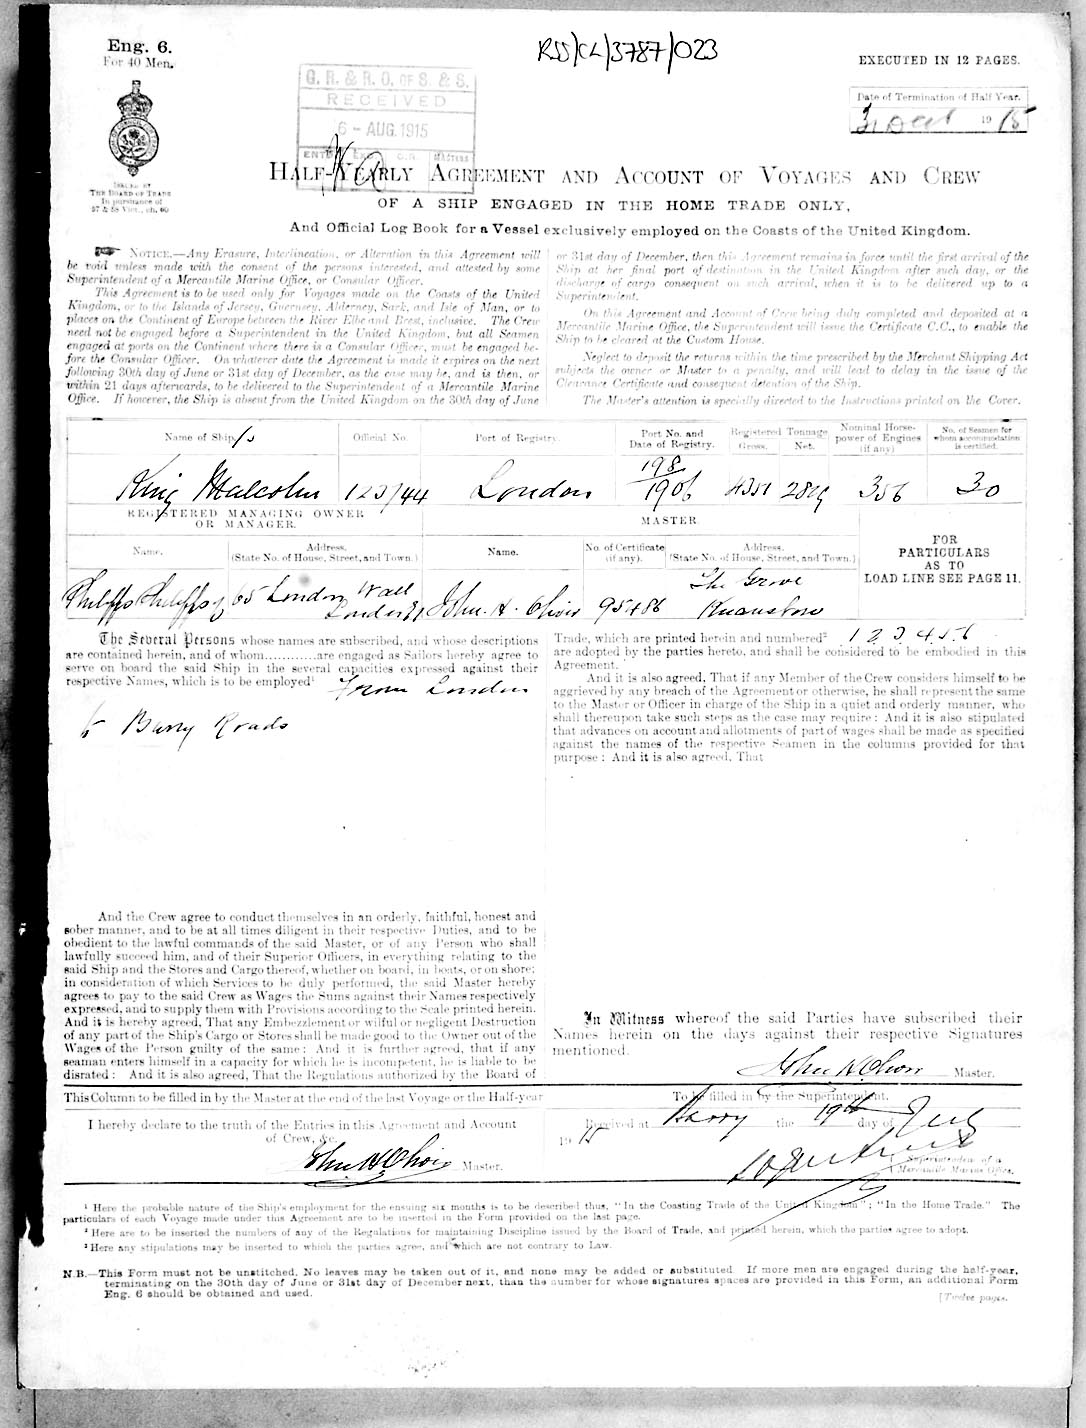 Eng. 6.
For 40 Men.
RSS/CL/3787/023
EXECUTED IN 12 PAGES.
Date of Termination of Half Year.
31 Dec 1915
G. R. & R. O. OF S. & S.
RECEIVED
6 - AUG. 1915
ISSUED BY
THE BOARD OF TRADE
In pursuance of
57 & 58 Vict., ch. 60
HALF-YEARLY AGREEMENT AND ACCOUNT OF VOYAGES AND CREW
OF A SHIP ENGAGED IN THE HOME TRADE ONLY,
And Official Log Book for a Vessel exclusively employed on the Coasts of the United Kingdom.
NOTICE.—Any Erasure, Interlineation, or Alteration in this Agreement will
be void unless made with the consent of the persons interested, and attested by some
Superintendent of a Mercantile Marine Office, or Consular Officer.
This Agreement is to be used only for Voyages made on the Coasts of the United
Kingdom, or to the Islands of Jersey, Guernsey, Alderney, Sark, and Isle of Man, or to
places on the Continent of Europe between the River Elbe and Brest, inclusive. The Crew
need not be engaged before a Superintendent in the United Kingdom, but all Seamen
engaged at ports on the Continent where there is a Consular Officer, must be engaged be-
fore the Consular Officer. On whatever date the Agreement is made it expires on the next
following 30th day of June or 31st day of December, as the case may be, and is then, or
within 21 days afterwards, to be delivered to the Superintendent of a Mercantile Marine
Office. If however, the Ship is absent from the United Kingdom on the 30th day of June
or 31st day of December, then this Agreement remains in force until the first arrival of the
Ship at her final port of destination in the United Kingdom after such day, or the
discharge of cargo consequent on such arrival, when it is to be delivered up to a
Superintendent.
On this Agreement and Account of Crew being duly completed and deposited at a
Mercantile Marine Office, the Superintendent will issue the Certificate C.C., to enable the
Ship to be cleared at the Custom House.
Neglect to deposit the returns within the time prescribed by the Merchant Shipping Act
subjects the owner or Master to a penalty, and will lead to delay in the issue of the
Clearance Certificate and consequent detention of the Ship.
The Master's attention is specially directed to the Instructions printed on the Cover.
Name of Ship. Official No. Port of Registry. Port No. and Date of Registry. Registered Tonnage Gross. Net. Nominal Horse-power of Engines (if any) No. of Seamen for whom accommodation is certified.
King Malcolm 123744 London 198/1906 4351 2819 356 30
REGISTERED MANAGING OWNER
OR MANAGER.
MASTER
FOR
PARTICULARS
AS TO
LOAD LINE SEE PAGE 11.
Name. Address. (State No. of House, Street, and Town.) Name. No. of Certificate (if any). Address. (State No. of House, Street, and Town.)
Philipps Philipps 65 London Wall London John H. The Grove
The Several Persons whose names are subscribed, and whose descriptions
are contained herein, and of whom............are engaged as Sailors hereby agree to
serve on board the said Ship in the several capacities expressed against their
respective Names, which is to be employed¹ From London
to Barry Roads
Trade, which are printed herein and numbered² 1 2 3 4 5 6
are adopted by the parties hereto, and shall be considered to be embodied in this
Agreement.
And it is also agreed, That if any Member of the Crew considers himself to be
aggrieved by any breach of the Agreement or otherwise, he shall represent the same
to the Master or Officer in charge of the Ship in a quiet and orderly manner, who
shall thereupon take such steps as the case may require: And it is also stipulated
that advances on account and allotments of part of wages shall be made as specified
against the names of the respective Seamen in the columns provided for that
purpose: And it is also agreed, That
And the Crew agree to conduct themselves in an orderly, faithful, honest and
sober manner, and to be at all times diligent in their respective Duties, and to be
obedient to the lawful commands of the said Master, or of any Person who shall
lawfully succeed him, and of their Superior Officers, in everything relating to the
said Ship and the Stores and Cargo thereof, whether on board, in boats, or on shore;
in consideration of which Services to be duly performed, the said Master hereby
agrees to pay to the said Crew as Wages the Sums against their Names respectively
expressed, and to supply them with Provisions according to the Scale printed herein.
And it is hereby agreed, That any Embezzlement or wilful or negligent Destruction
of any part of the Ship's Cargo or Stores shall be made good to the Owner out of the
Wages of the Person guilty of the same: And it is further agreed, that if any
seaman enters himself in a capacity for which he is incompetent, he is liable to be
disrated: And it is also agreed, That the Regulations authorized by the Board of
In Witness whereof the said Parties have subscribed their
Names herein on the days against their respective Signatures
mentioned.
John H. Master.
This Column to be filled in by the Master at the end of the last Voyage or the Half-year
To be filled in by the Superintendent.
I hereby declare to the truth of the Entries in this Agreement and Account
of Crew, &c.
John H. Master.
Received at Barry the 19th day of July
1915
Superintendent of a
Mercantile Marine Office.
¹ Here the probable nature of the Ship's employment for the ensuing six months is to be described thus, "In the Coasting Trade of the United Kingdom"; "In the Home Trade." The
particulars of each Voyage made under this Agreement are to be inserted in the Form provided on the last page.
² Here are to be inserted the numbers of any of the Regulations for maintaining Discipline issued by the Board of Trade, and printed herein, which the parties agree to adopt.
³ Here any stipulations may be inserted to which the parties agree, and which are not contrary to Law.
N.B.—This Form must not be unstitched. No leaves may be taken out of it, and none may be added or substituted. If more men are engaged during the half-year,
terminating on the 30th day of June or 31st day of December next, than the number for whose signatures spaces are provided in this Form, an additional Form
Eng. 6 should be obtained and used.
[Twelve pages.